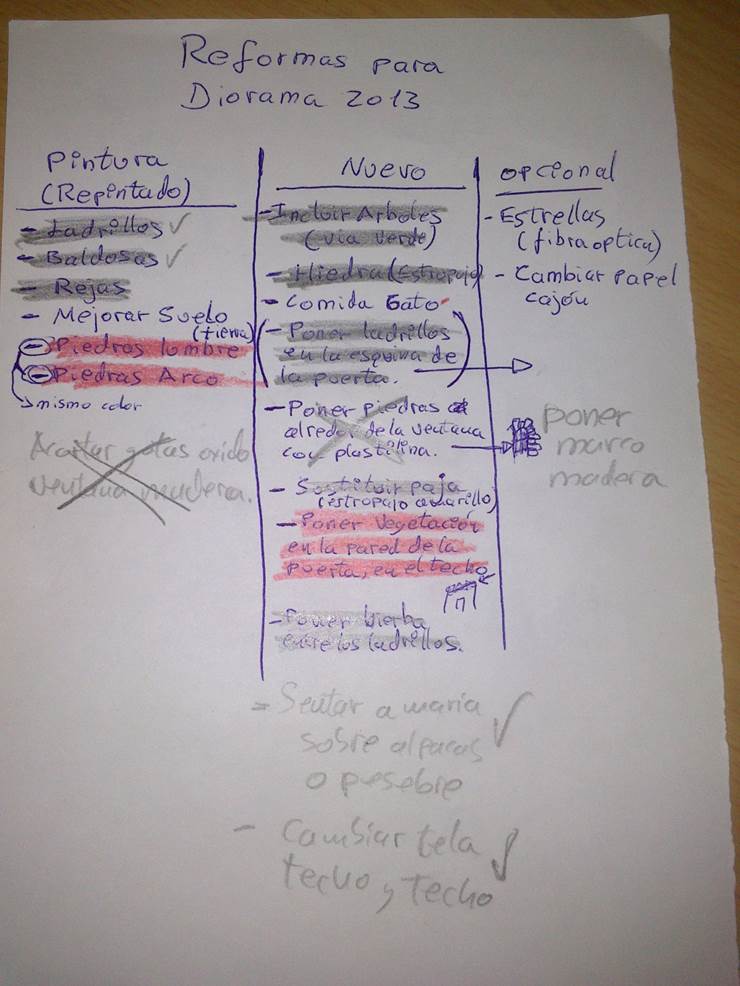 Reformas para
Diorama 2013
Pintura
(Repintado)
- Ladrillos ✓
- Baldosas ✓
- Rejas
- Mejorar Suelo
(tierra)
- Piedras lumbre
- Piedras Arco
mismo color
gotas oxido
ventana madera.
Nuevo
- Incluir Arboles
(via verde)
- Hiedra (Estropajo)
- Comida Gato
(- Poner ladrillos
en la esquina de
la puerta.)
- Poner piedras
alrededor de la ventana
con plastilina.
- Sustituir paja
(estropajo amarillo)
- Poner Vegetación
en la pared de la
puerta, en el techo
- Poner hierba
entre los ladrillos.
- Sentar a maria
sobre alpacas
o pesebre
- Cambiar tela
techo y techo
opcional
- Estrellas
(fibra optica)
- Cambiar papel
cajón
poner
marco
madera